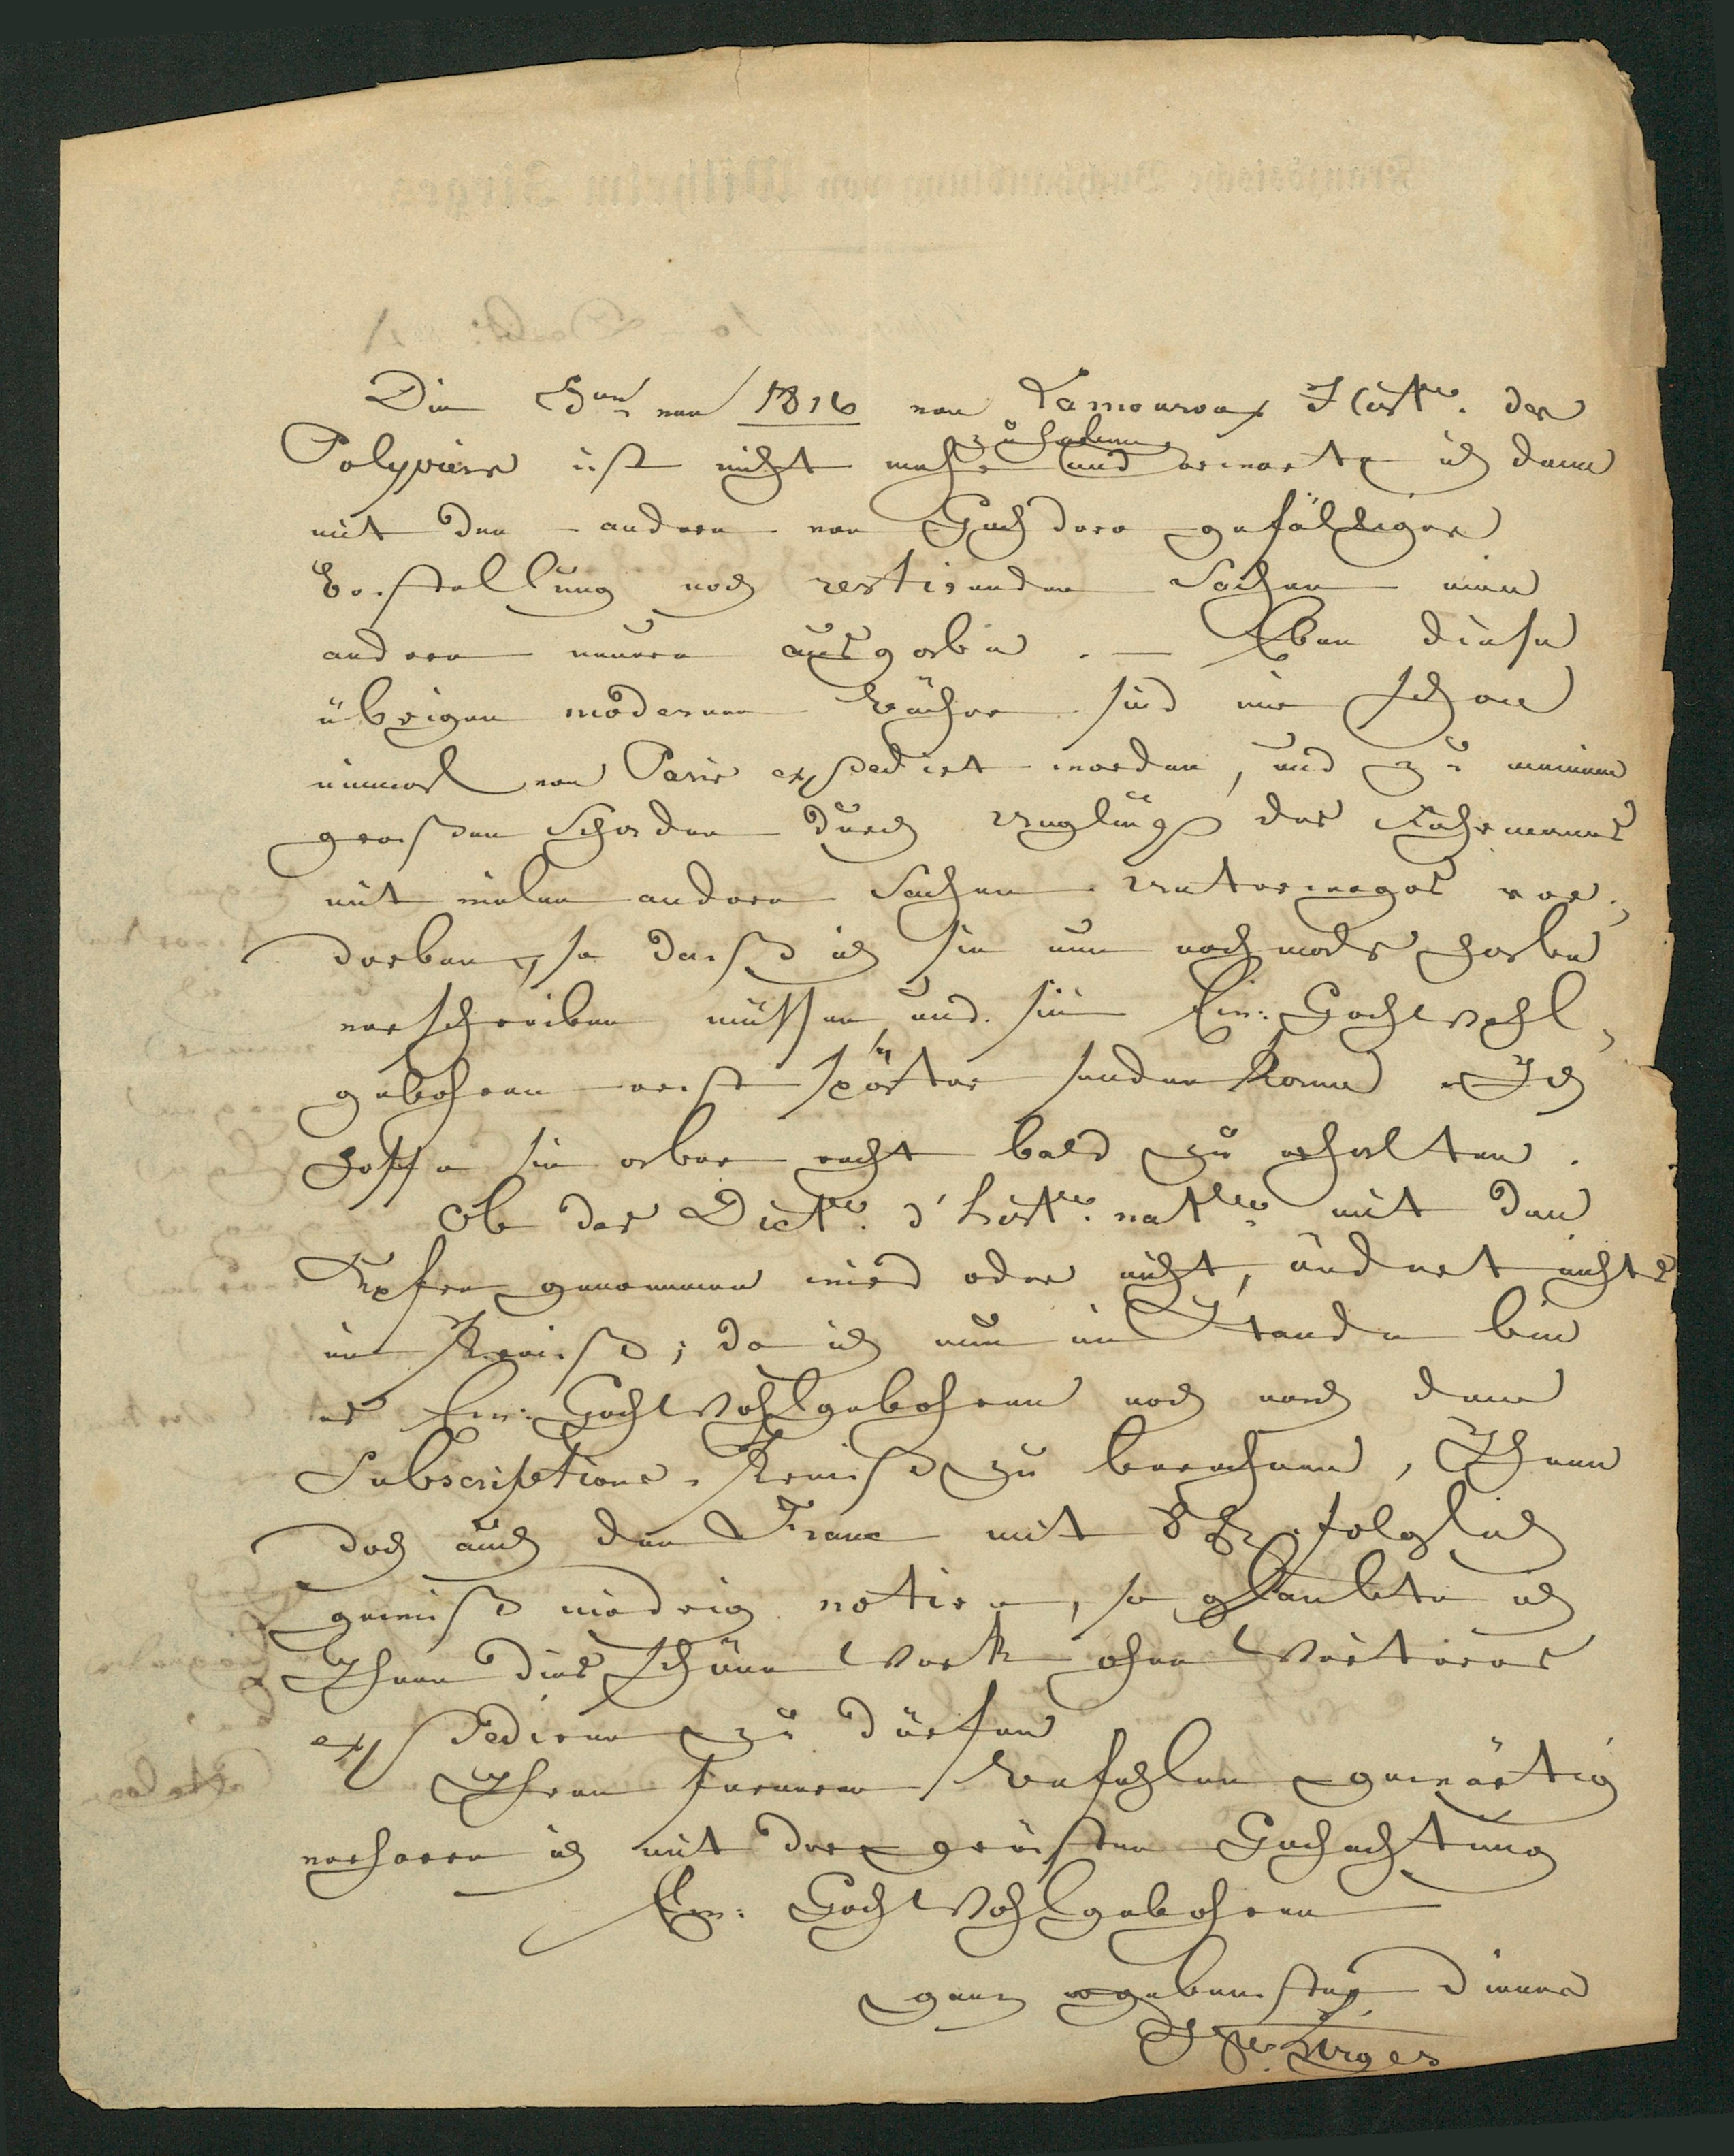 Die Edon von 1816 von Lamouroux Histre. des
zu haben
Polypiers ist nicht mehr und erwarte ich dann
mit den andern von Hoch dero gefälligen
Bestellung noch restirenden Sachen eine
andere neuere Ausgabe. — Eben diese
übrigen modernen Bücher sind mir schon
einmal von Paris expedirt worden, und zu meinem
grossen Schaden durch Unglück des Fuhrmanns
mit vielen andern Sachen Unterweges ver-
dorben, so dass ich sie nun nochmals habe
verschreiben müssen und sie Ew: HochWohl-
gebohren erst später senden kann. Ich
hoffe sie aber recht bald zu erhalten.
Ob das Dictre. d'histre. natlle mit den
Kupfern genommen wird oder nicht, ändert nichts
im Preiss; da ich nun im Stande bin
es Ew: HochWohlgebohren noch nach dem
Subscriptions-Preiss zu berechnen, Ihnen
doch auch den Franc mit 8 gr. folglich
gewiss niedrig notire, so glaubte ich
Ihnen dies schöne Werk ohne Weiteres
expediren zu dürfen
Ihren ferneren Befehlen gewärtig
verharre ich mit der grössten Hochachtung
Ew: HochWohlgebohren
ganz ergebenster Diener
W. Zirges